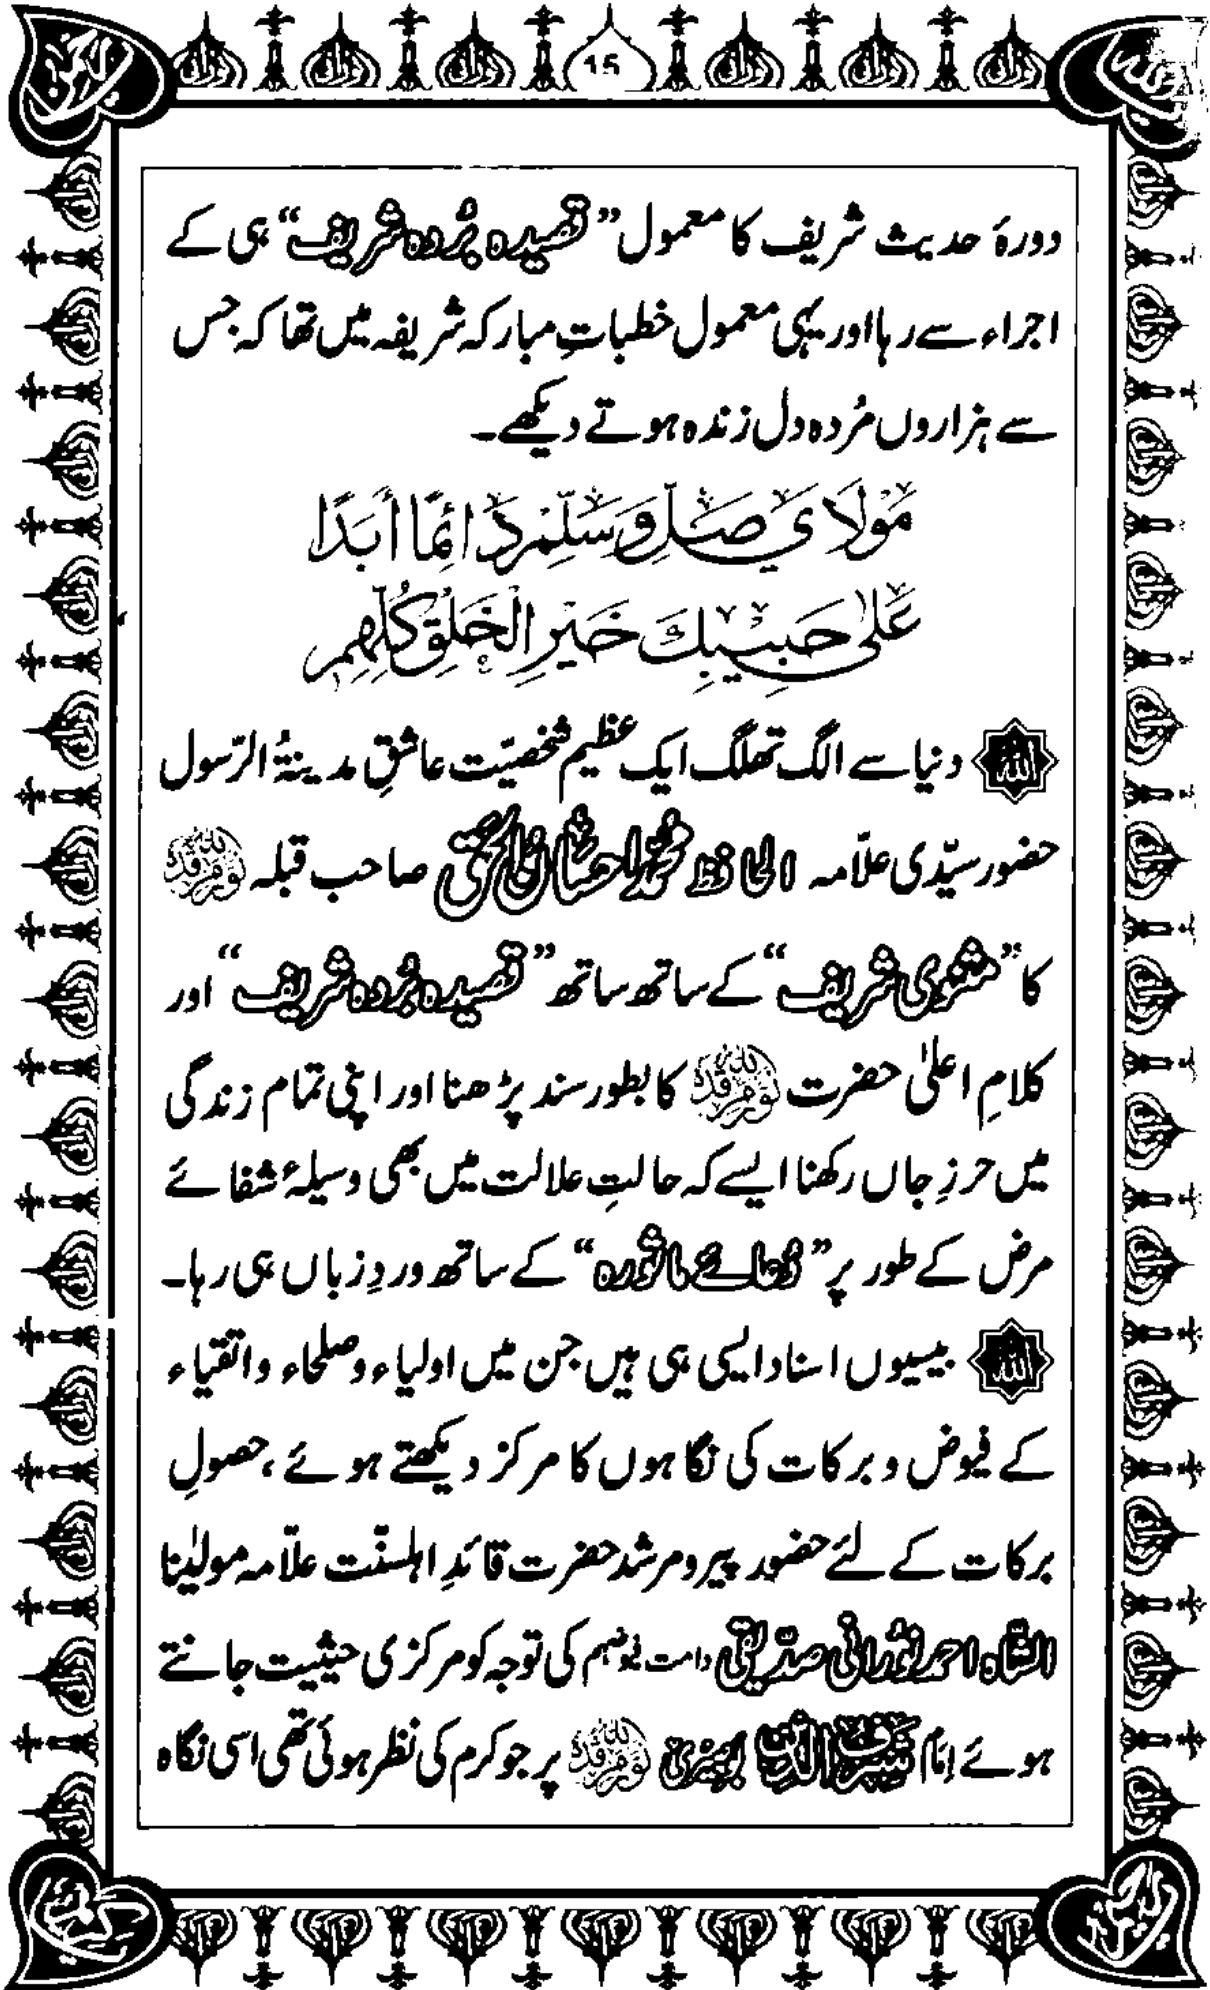 15
دورۂ حدیث شریف کا معمول ”قصیدہ بُردہ شریف“ ہی کے
اجراء سے رہا اور یہی معمول خطباتِ مبارکہ شریفہ میں تھا کہ جس
سے ہزاروں مُردہ دل زندہ ہوتے دیکھے۔
مَوْلَایَ صَلِّ وَسَلِّمْ دَائِمًا اَبَدًا
عَلٰی حَبِیْبِكَ خَیْرِ الْخَلْقِ كُلِّهِمِ
اللہ دنیا سے الگ تھلگ ایک عظیم شخصیّت عاشقِ مدینۃُ الرّسول
حضور سیّدی علّامہ الحافظ محمد احسان الحق صاحب قبلہ
کا ”مثنوی شریف“ کے ساتھ ساتھ ”قصیدہ بُردہ شریف“ اور
کلامِ اعلیٰ حضرت کا بطور سند پڑھنا اور اپنی تمام زندگی
میں حرزِ جاں رکھنا ایسے کہ حالتِ علالت میں بھی وسیلۂ شفائے
مرض کے طور پر ”دُعائے ماثورہ“ کے ساتھ وردِ زباں ہی رہا۔
اللہ بیسیوں اسناد ایسی ہی ہیں جن میں اولیاء و صلحاء و اتقیاء
کے فیوض و برکات کی نگاہوں کا مرکز دیکھتے ہوئے، حصولِ
برکات کے لئے حضور پیر و مرشد حضرت قائدِ اہلسنّت علّامہ مولیٰنا
الشاہ احمد نورانی صدّیقی دامت فیوضہم کی توجہ کو مرکزی حیثیت جانتے
ہوئے اِمام شرف الدین بوصیری پر جو کرم کی نظر ہوئی تھی اسی نگاہ